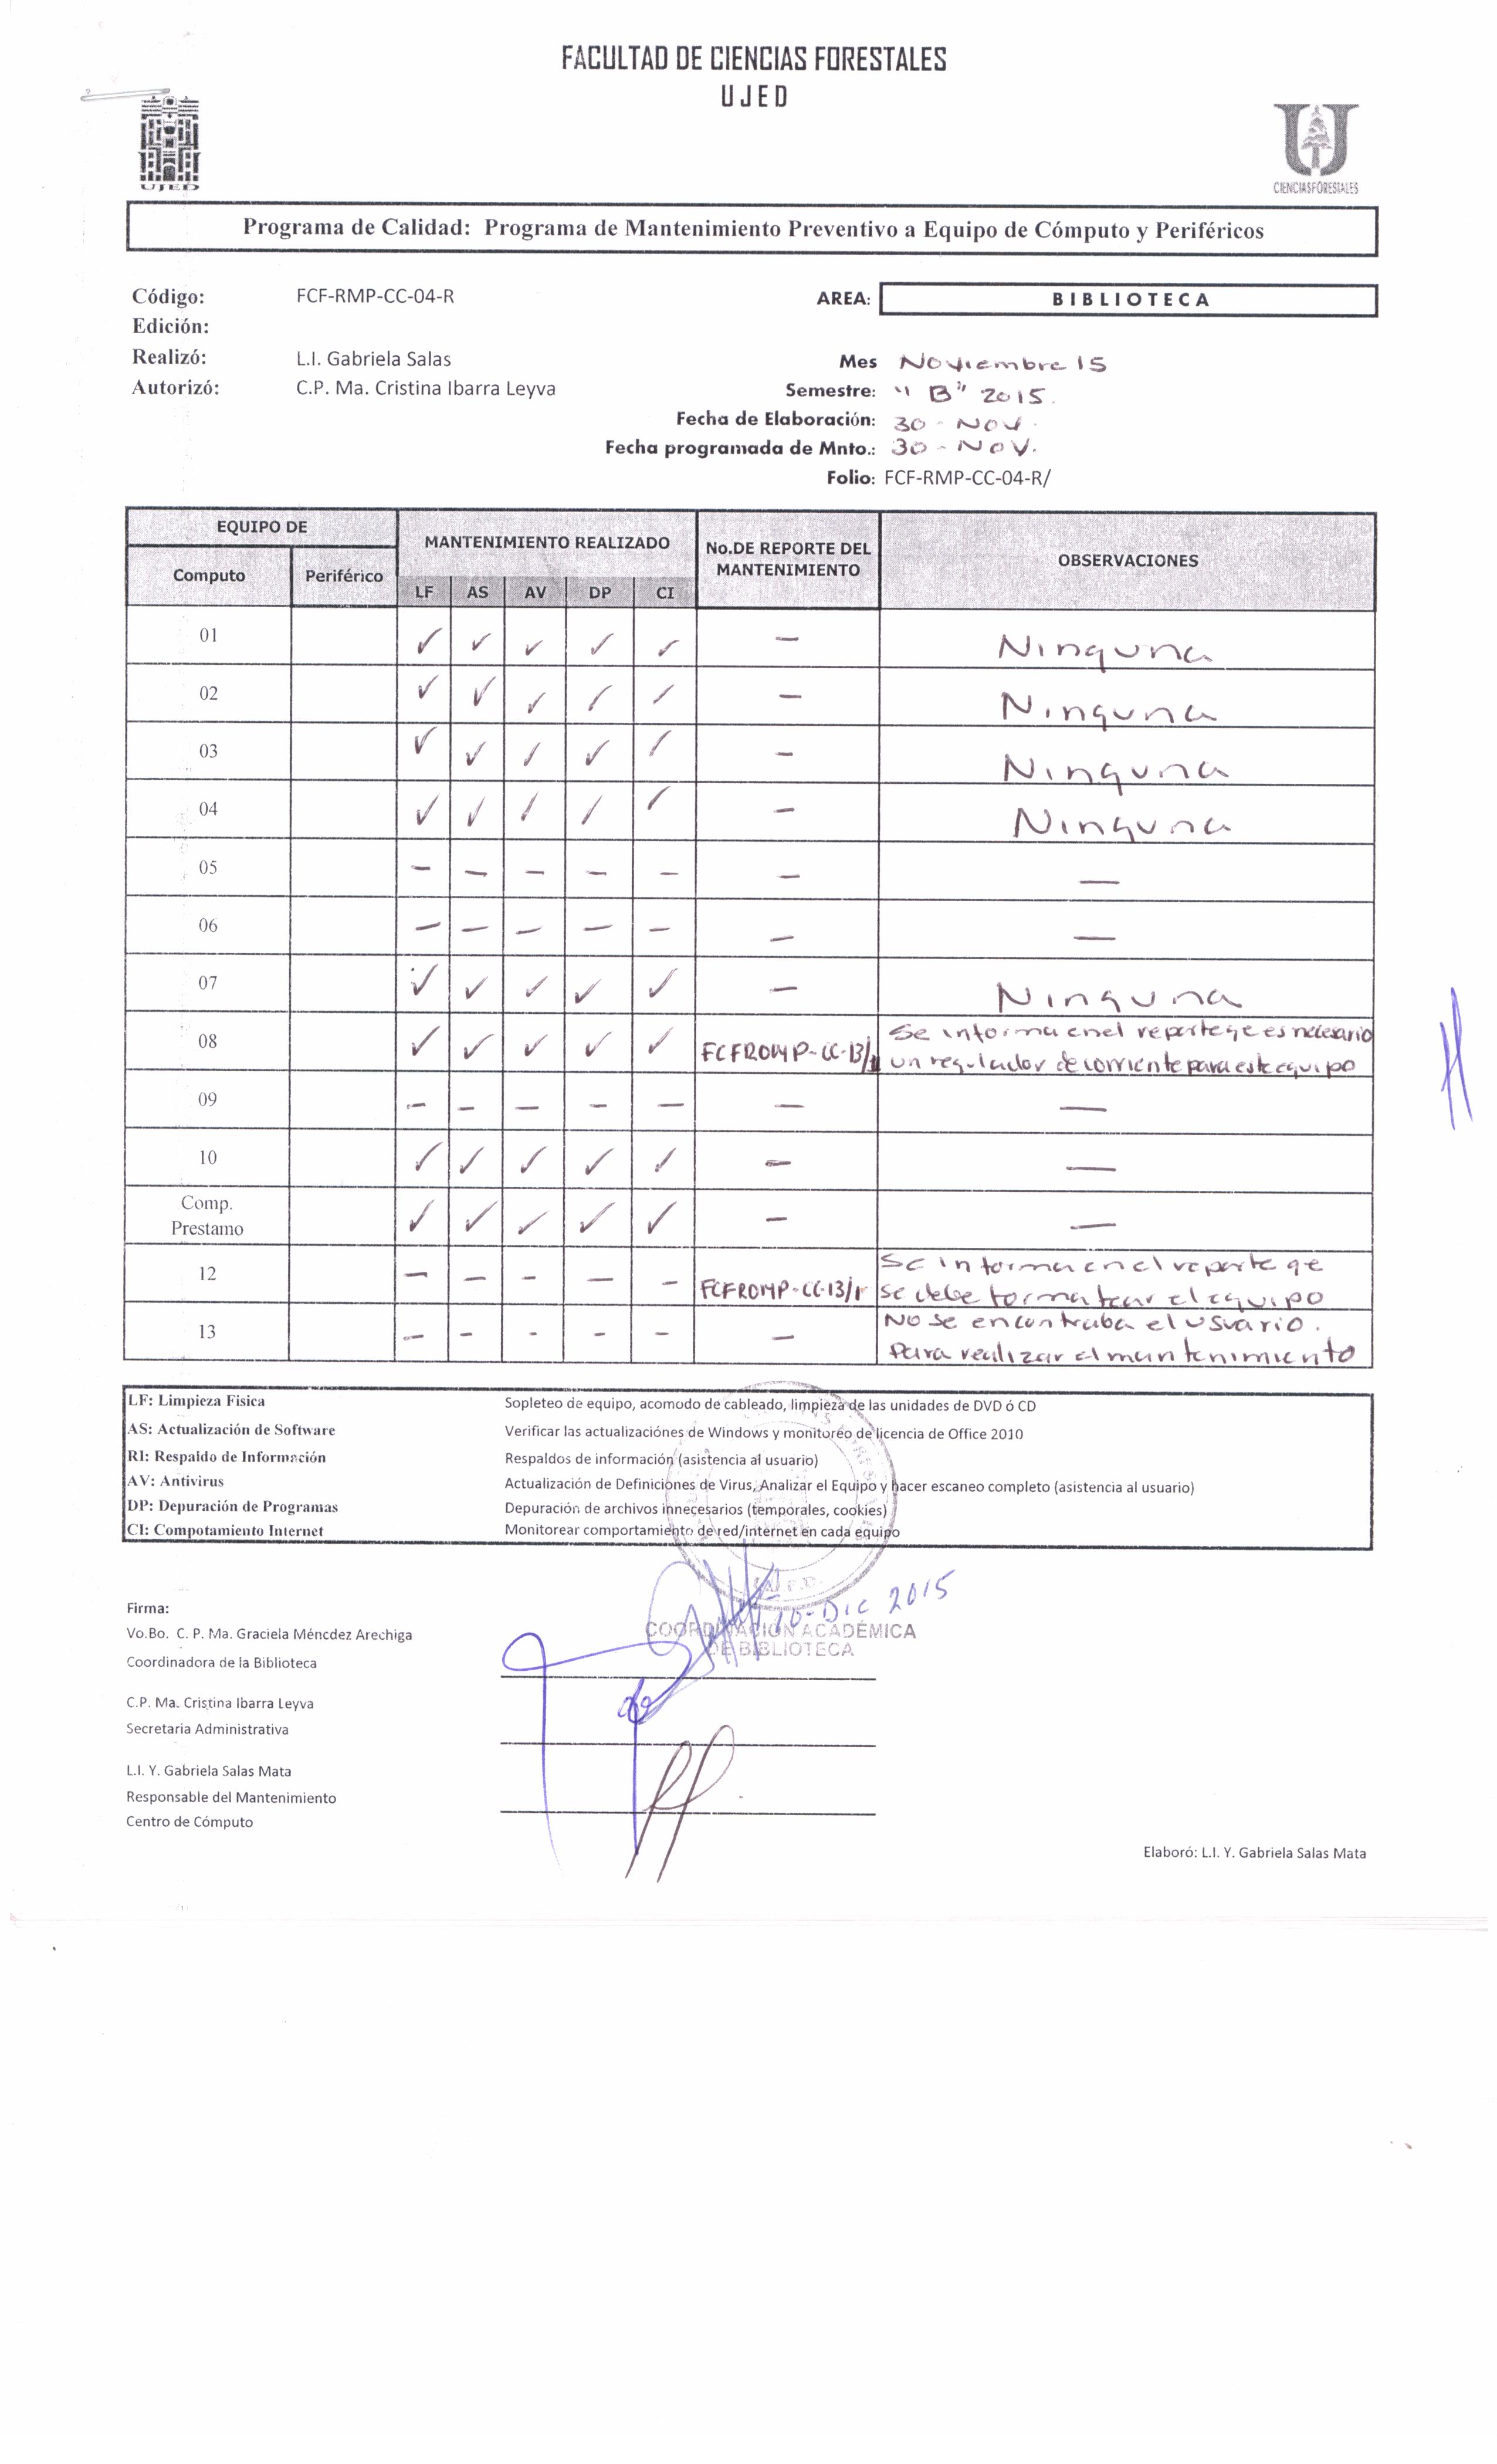 FACULTAD DE CIENCIAS FORESTALES
UJED
UJED
CIENCIASFORESTALES
Programa de Calidad: Programa de Mantenimiento Preventivo a Equipo de Cómputo y Periféricos
Código: FCF-RMP-CC-04-R
AREA: BIBLIOTECA
Edición:
Realizó: L.I. Gabriela Salas
Mes Noviembre 15
Autorizó: C.P. Ma. Cristina Ibarra Leyva
Semestre: "B" 2015.
Fecha de Elaboración: 30-NOV.
Fecha programada de Mnto.: 30-NOV.
Folio: FCF-RMP-CC-04-R/
EQUIPO DE
MANTENIMIENTO REALIZADO
No.DE REPORTE DEL
MANTENIMIENTO
OBSERVACIONES
Computo Periférico
LF AS AV DP CI
01 ✓ ✓ ✓ ✓ ✓ — Ninguna
02 ✓ ✓ ✓ ✓ ✓ — Ninguna
03 ✓ ✓ ✓ ✓ ✓ — Ninguna
04 ✓ ✓ ✓ ✓ ✓ — Ninguna
05 — — — — — — —
06 — — — — — — —
07 ✓ ✓ ✓ ✓ ✓ — Ninguna
08 ✓ ✓ ✓ ✓ ✓ FCFROMP-CC-13/1 Se informa en el reporte qe es necesario
un regulador de corriente para este equipo
09 — — — — — — —
10 ✓ ✓ ✓ ✓ ✓ — —
Comp.
Prestamo ✓ ✓ ✓ ✓ ✓ — —
12 — — — — — FCFROMP-CC-13/1 Se informa en el reporte qe
se debe formatear el equipo
13 — — — — — — No se encontraba el usuario.
Para realizar el mantenimiento
LF: Limpieza Fisica Sopleteo de equipo, acomodo de cableado, limpieza de las unidades de DVD ó CD
AS: Actualización de Software Verificar las actualizaciónes de Windows y monitoreo de licencia de Office 2010
RI: Respaldo de Información Respaldos de información (asistencia al usuario)
AV: Antivirus Actualización de Definiciones de Virus, Analizar el Equipo y hacer escaneo completo (asistencia al usuario)
DP: Depuración de Programas Depuración de archivos innecesarios (temporales, cookies)
CI: Compotamiento Internet Monitorear comportamiento de red/internet en cada equipo
10-Dic 2015
Firma:
COORDINACIÓN ACADÉMICA
DE BIBLIOTECA
Vo.Bo. C. P. Ma. Graciela Méncdez Arechiga
Coordinadora de la Biblioteca
C.P. Ma. Cristina Ibarra Leyva
Secretaria Administrativa
L.I. Y. Gabriela Salas Mata
Responsable del Mantenimiento
Centro de Cómputo
Elaboró: L.I. Y. Gabriela Salas Mata